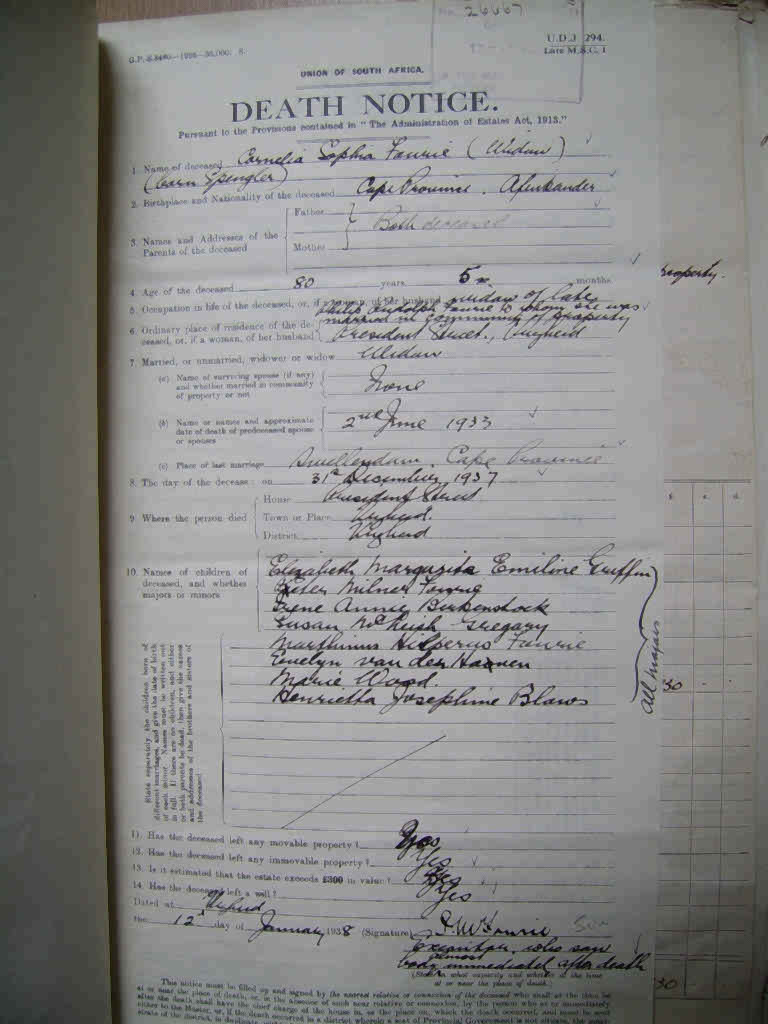 26667
G.P.-S.8480—1926—30,000. S.
U.D.J 294.
Late M.S.C. 1
UNION OF SOUTH AFRICA.
DEATH NOTICE.
Pursuant to the Provisions contained in "The Administration of Estates Act, 1913."
1. Name of deceased Cornelia Sophia Fourie (Widow)
(born Spengler)
2. Birthplace and Nationality of the deceased Cape Province. Afrikander
3. Names and Addresses of the Parents of the deceased
Father
Mother
Both deceased
4. Age of the deceased 80 years 5 months
5. Occupation in life of the deceased; or, if a woman, of her husband widow of late
Philip Rudolph Fourie to whom she was
married in community of property
6. Ordinary place of residence of the deceased, or, if a woman, of her husband President Street, Vryheid
7. Married, or unmarried, widower or widow Widow
(a) Name of surviving spouse (if any) and whether married in community of property or not
None
(b) Name or names and approximate date of death of predeceased spouse or spouses
2nd June 1933
(c) Place of last marriage Swellendam, Cape Province
8. The day of the decease: on 31st December, 1937
9. Where the person died
House President Street
Town or Place Vryheid.
District Vryheid
10. Names of children of deceased, and whether majors or minors
Elizabeth Margarita Emiline Griffin
Pieter Milner Fourie
Irene Annie Birkenstock
Susan McLeish Gregory
Marthinus Hilperus Fourie
Evelyn van der Hoonen
Marie Wood
Henrietta Josephine Blaws
All Majors
State separately the children born of
different marriages, and give the date of birth
of each minor. Names must be written out
in full. If there are no children, and either
or both parents be dead, then give the names
and addresses of the brothers and sisters of
the deceased
11. Has the deceased left any movable property? Yes
12. Has the deceased left any immovable property? Yes
13. Is it estimated that the estate exceeds £300 in value? Yes
14. Has the deceased left a will? Yes
Dated at Vryheid,
the 12th day of January 1938 (Signature) P.M. Fourie
Executor, who saw
body almost immediately after death
(State in what capacity and whether at the time
at or near the place of death.)
This notice must be filled up and signed by the nearest relative or connection of the deceased who shall at the time be
at or near the place of death, or, in the absence of such near relative or connection, by the person who at or immediately
after the death shall have the chief charge of the house in, or the place on, which the death occurred, and must be sent
property.
£. s. d.
30 -
30 -